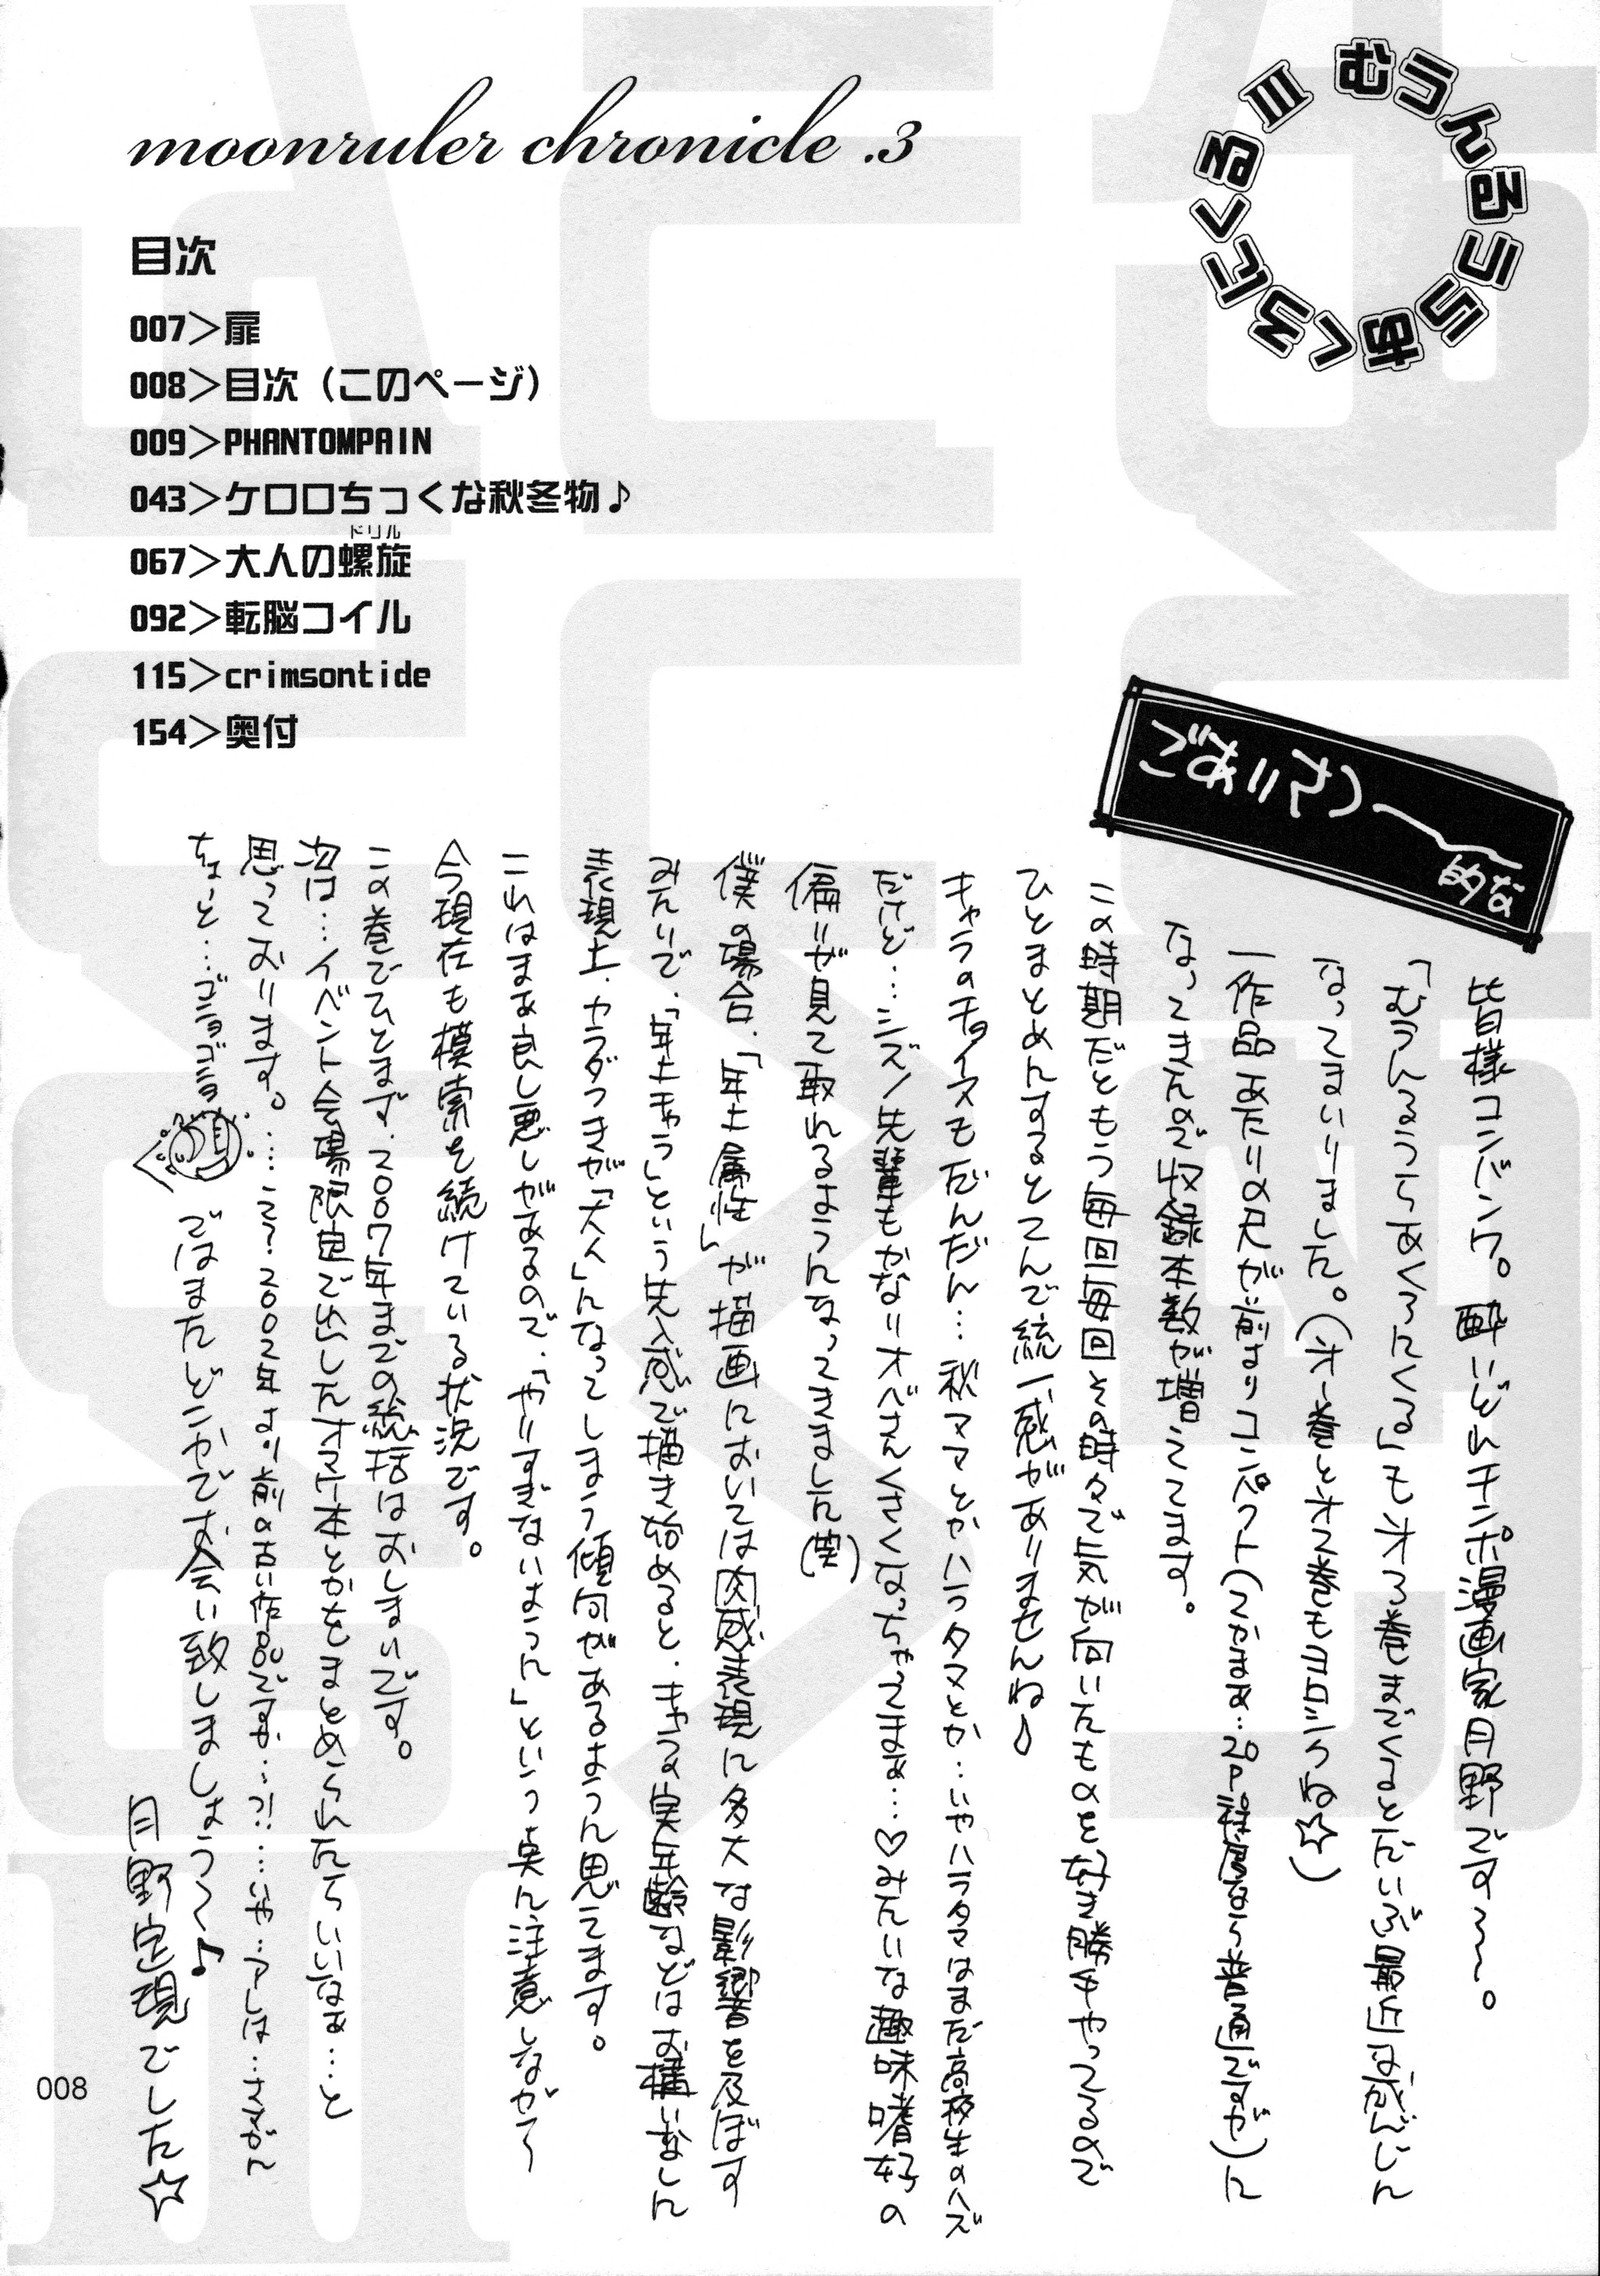 moonruler chronicle .3
むうんるうらあくろにくるIII
目次
007>扉
008>目次（このページ）
009>PHANTOMPAIN
043>ケロロちっくな秋冬物♪
ドリル
067>大人の螺旋
092>転脳コイル
115>crimsontide
154>奥付
ごあいさつ〜的な
皆様コンバンワ。酔いどれチンポ漫画家月野です〜〜。
「むうんるうらあくろにくる」もオ3巻までくるとだいぶ最近な感じに
なってまいりました。（オ1巻とオ2巻もヨロシクね☆）
一作品あたりの尺が前よりコンパクト（つかまぁ‥20p程度なら普通ですが）に
なってきたので収録本数が増えてます。
この時期だともう毎回毎回その時々で気が向いたものを好き勝手やってるので
ひとまとめにするとてんで統一感がありませんね♪
キャラのチョイスもだんだん…秋ママとかハラタマとか…いやハラタマはまだ高校生のハズ
だけど…シズノ先輩もかなりオベさんくさくなっちゃてまぁ…♡みたいな趣味嗜好の
偏りが見て取れるようになってきました（笑）
僕の場合、「年上属性」が描画においては肉感表現に多大な影響を及ぼす
みたいで、「年上キャラ」という先入感で描き始めると、キャラの実年齢などはお構いなしに
表現上、カラダつきが「大人」になってしまう傾向があるように思えます。
これはまぁ良し悪しがあるので、「やりすぎないように」という点に注意しながら〜
今現在も模索を続けている状況です。
この巻でひとまず、2007年までの総括はおしまいです。
次は…イベント会場限定で出したオマケ本とかをまとめられたらいいなぁ…と
思っております。……え？2002年より前の古い作品ですか…?!…いや‥アレは…さすがに
ちょーと…ゴニョゴニョ ではまたどこかでお会い致しましょう〜♪
月野定規でした☆
008